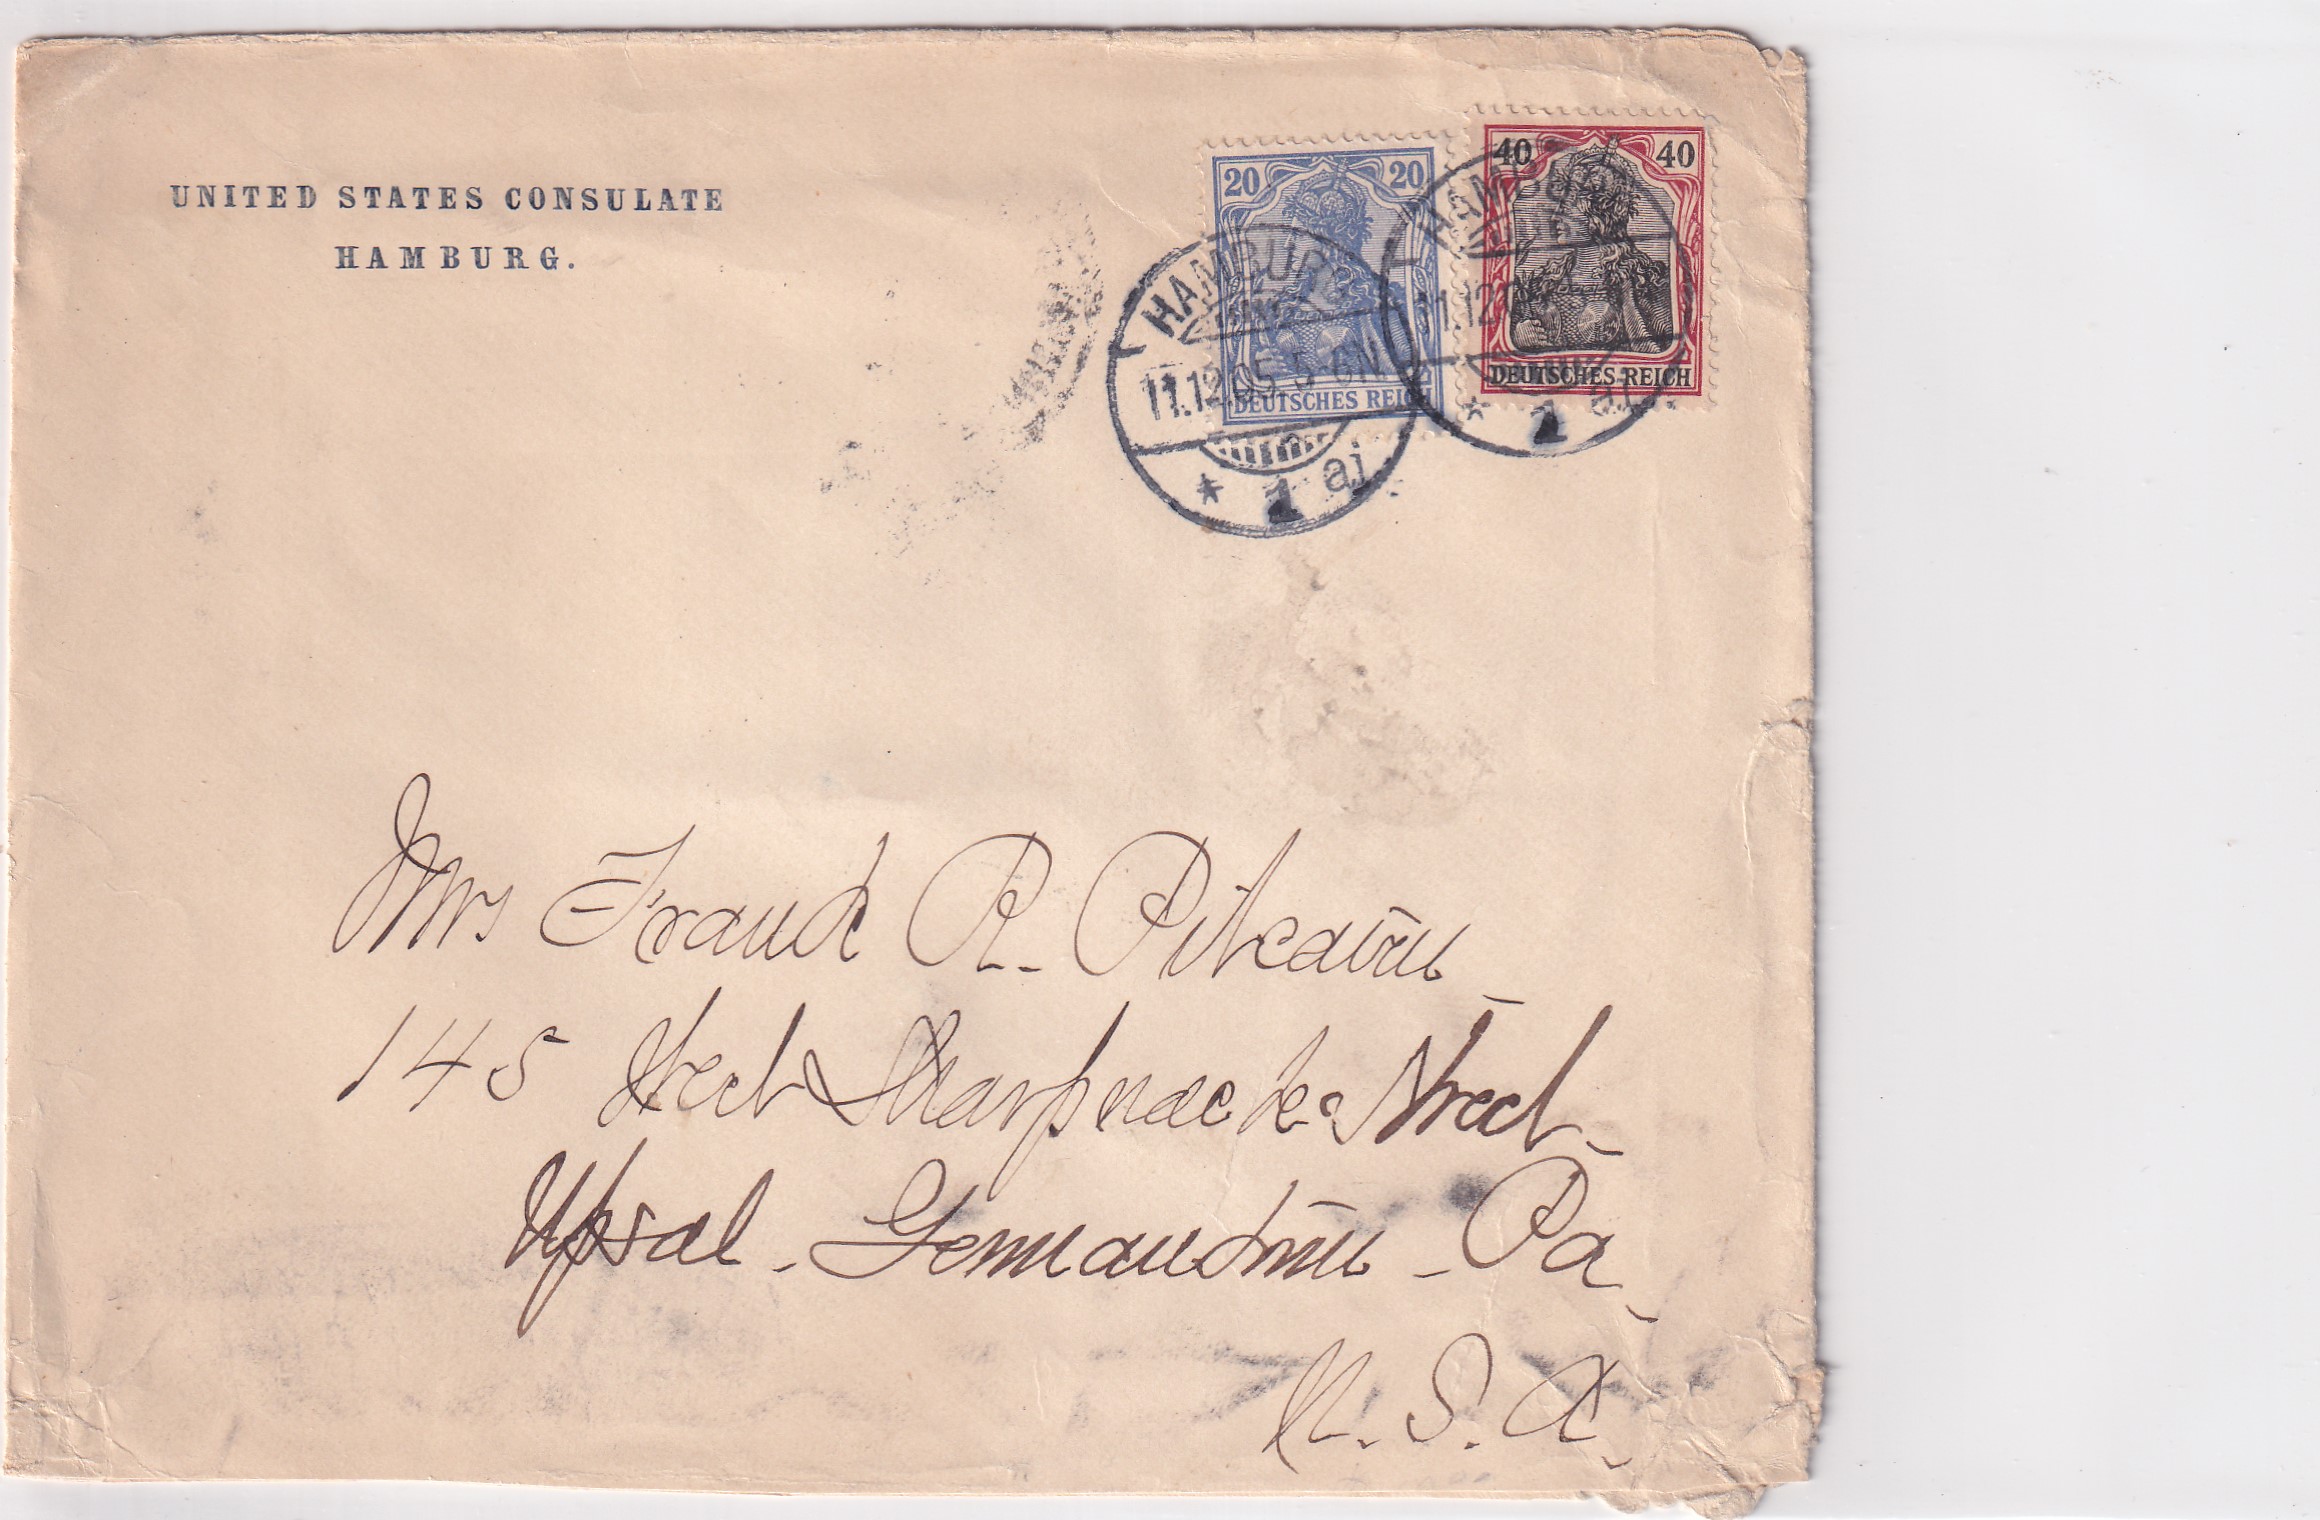 UNITED STATES CONSULATE
HAMBURG.
20 20
DEUTSCHES REICH
40 40
DEUTSCHES REICH
HAMBURG
11.12.05.5-6N
* 1 aj.
HAMBURG
11.12
* 1 aj.
Mrs Frank R. Pitcairn
145 West Sharpnack Street
Upsal - Germantown - Pa
U. S. A.